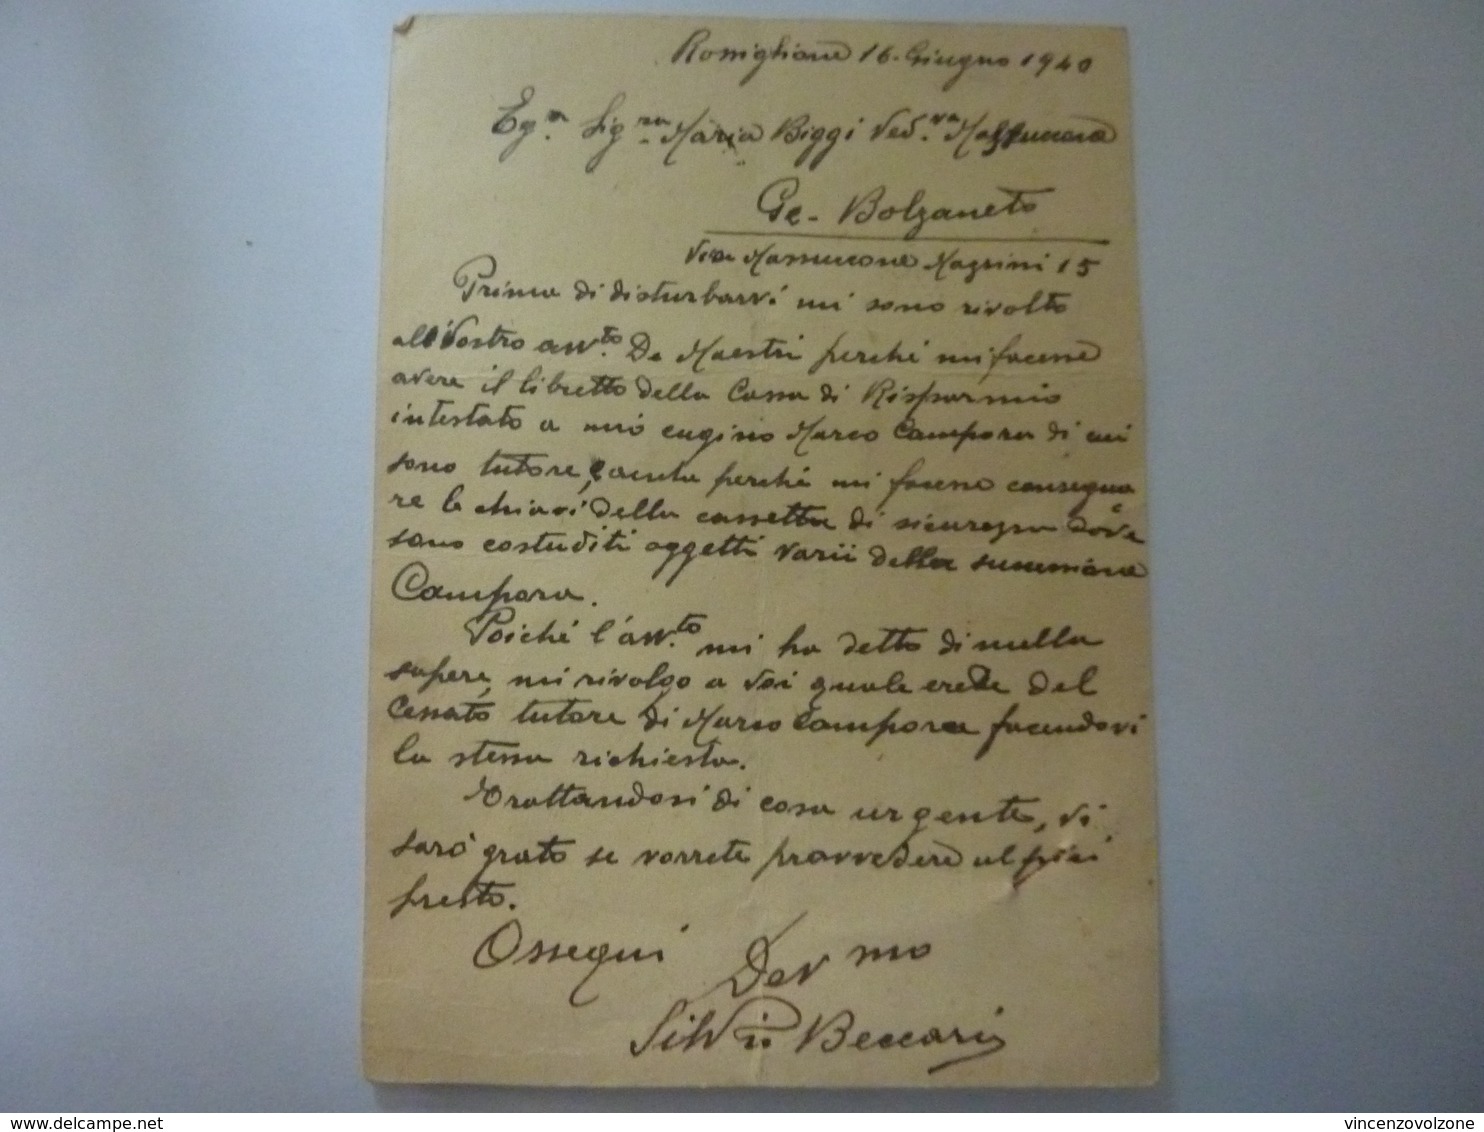 Rossiglione 16. Giugno 1940
Eg.a Sig.ra Maria Biggi Ved.va Massuccone
Ge - Bolzaneto
Via Massuccone Magrini 15
Prima di disturbarvi mi sono rivolto
al Vostro avv.to De Maestri perché mi facesse
avere il libretto della Cassa di Risparmio
intestato a mio cugino Marco Campora di cui
sono tutore, perché mi facesse consegna
re le chiavi della cassetta di sicurezza dove
sono costuditi oggetti varii della summione
Campora.
Poiché l'avv.to mi ha detto di nulla
sapere, mi rivolgo a Voi quale erede del
Cessato tutore di Marco Campora facendovi
la stessa richiesta.
Trattandosi di cosa urgente, vi
sarò grato se vorrete provvedere al più
presto.
Ossequi
Dev mo
Silvio Beccari
vincenzovolzone